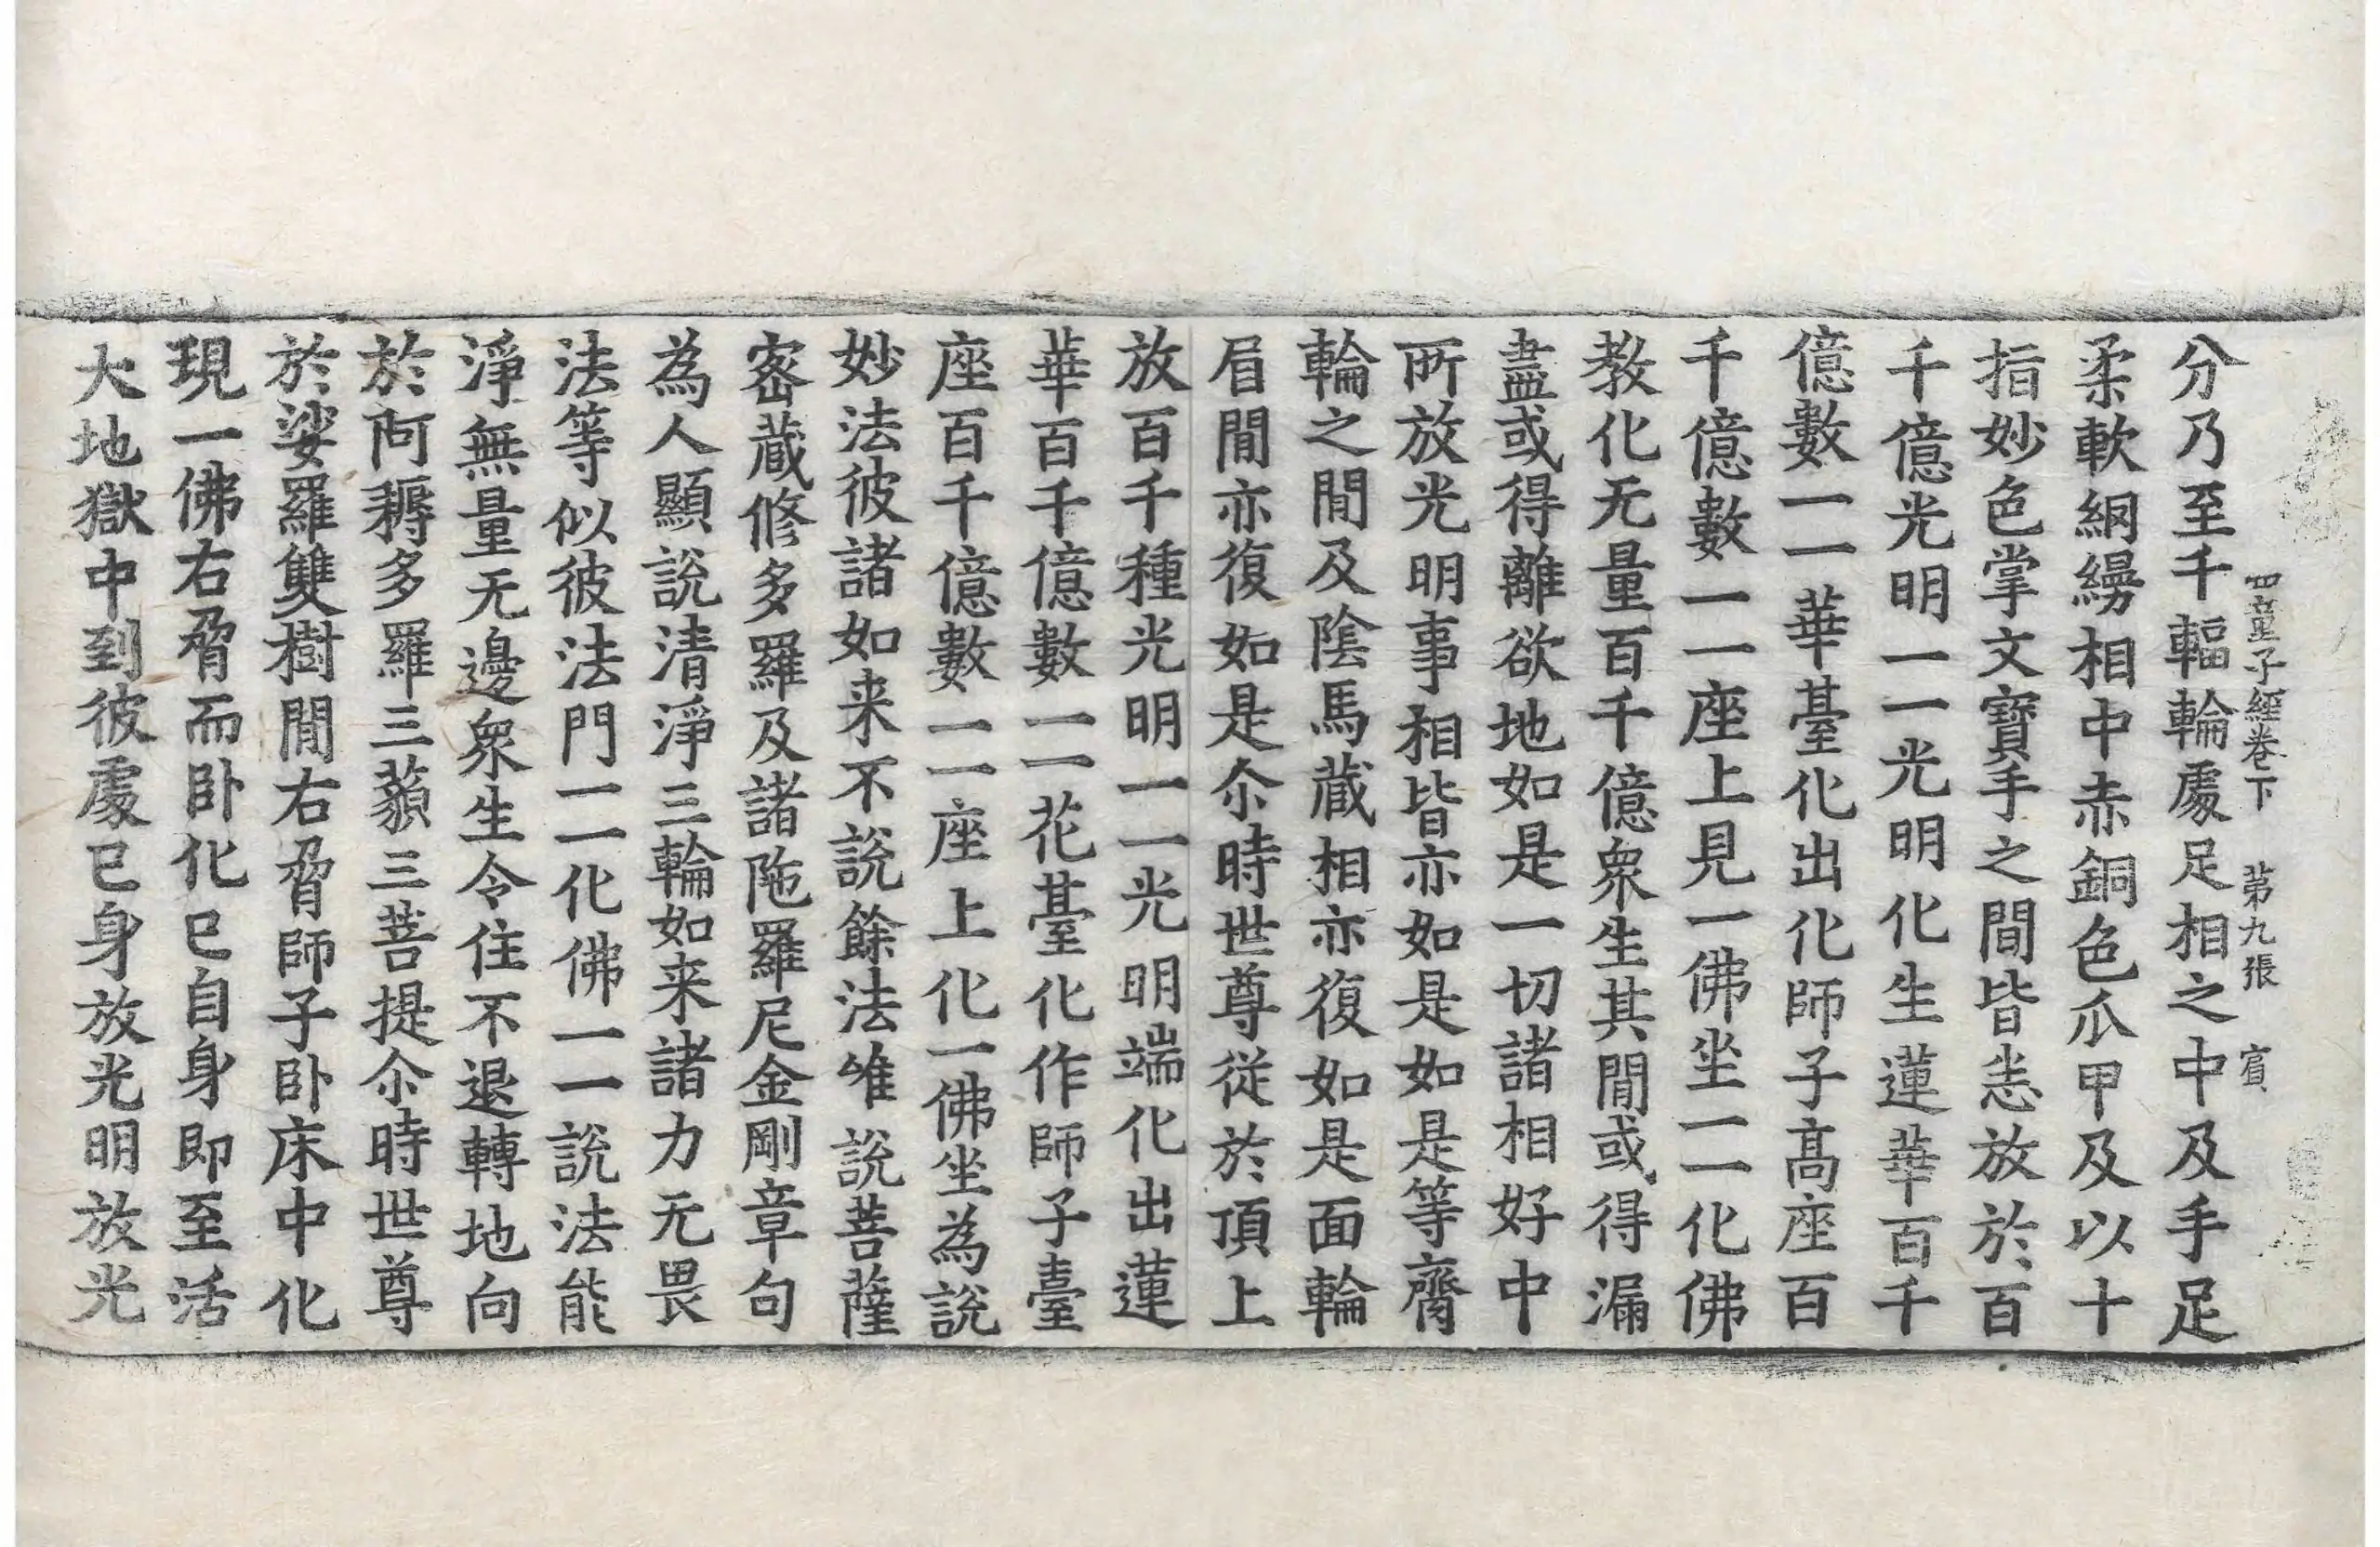 四童子經卷下 第九張 賓
分乃至千輻輪處足相之中及手足
柔軟網縵相中赤銅色爪甲及以十
指妙色掌文寶手之間皆悉放於百
千億光明一一光明化生蓮華百千
億數一一華臺化出化師子高座百
千億數一一座上見一佛坐一一化佛
教化无量百千億衆生其間或得漏
盡或得離欲地如是一切諸相好中
所放光明事相皆亦如是如是等齊
輪之間及陰馬藏相亦復如是面輪
眉間亦復如是尒時世尊從於頂上
放百千種光明一一光明端化出蓮
華百千億數一一花臺化作師子臺
座百千億數一一座上化一佛坐為說
妙法彼諸如来不說餘法唯說菩薩
密藏修多羅及諸陁羅尼金剛章句
為人顯說清淨三輪如来諸力无畏
法等似彼法門一一化佛一一說法能
淨無量无邊衆生令住不退轉地向
於阿耨多羅三藐三菩提尒時世尊
於娑羅雙樹間右脅師子卧床中化
現一佛右脅而卧化已自身即至活
大地獄中到彼處已身放光明放光